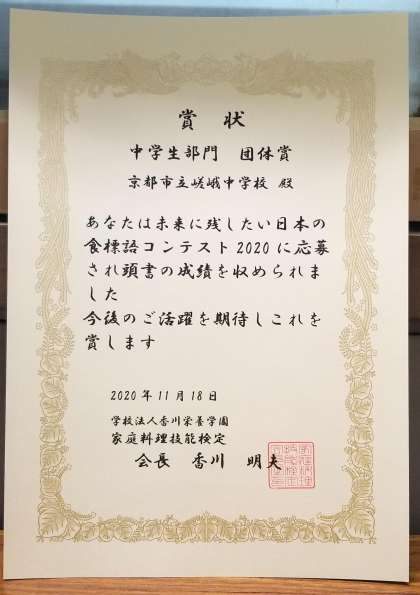 賞状
中学生部門　団体賞
京都市立嵯峨中学校 殿
あなたは未来に残したい日本の
食標語コンテスト2020に応募
され頭書の成績を収められま
した
今後のご活躍を期待しこれを
賞します
2020年11月18日
学校法人香川栄養学園
家庭料理技能検定
会長　香川　明夫